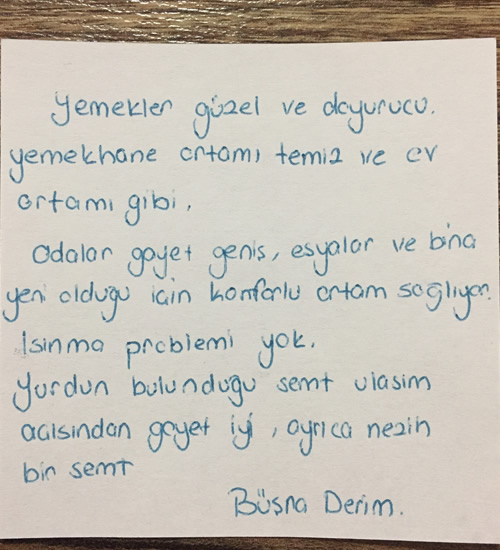 Yemekler güzel ve doyurucu.
yemekhane ortamı temiz ve ev
ortamı gibi.
Odalar gayet geniş, esyalar ve bina
yeni olduğu için konforlu ortam sağlıyor.
Isınma problemi yok.
Yurdun bulunduğu semt ulasim
acisindan gayet iyi, ayrıca nezih
bir semt
Büşna Derim.